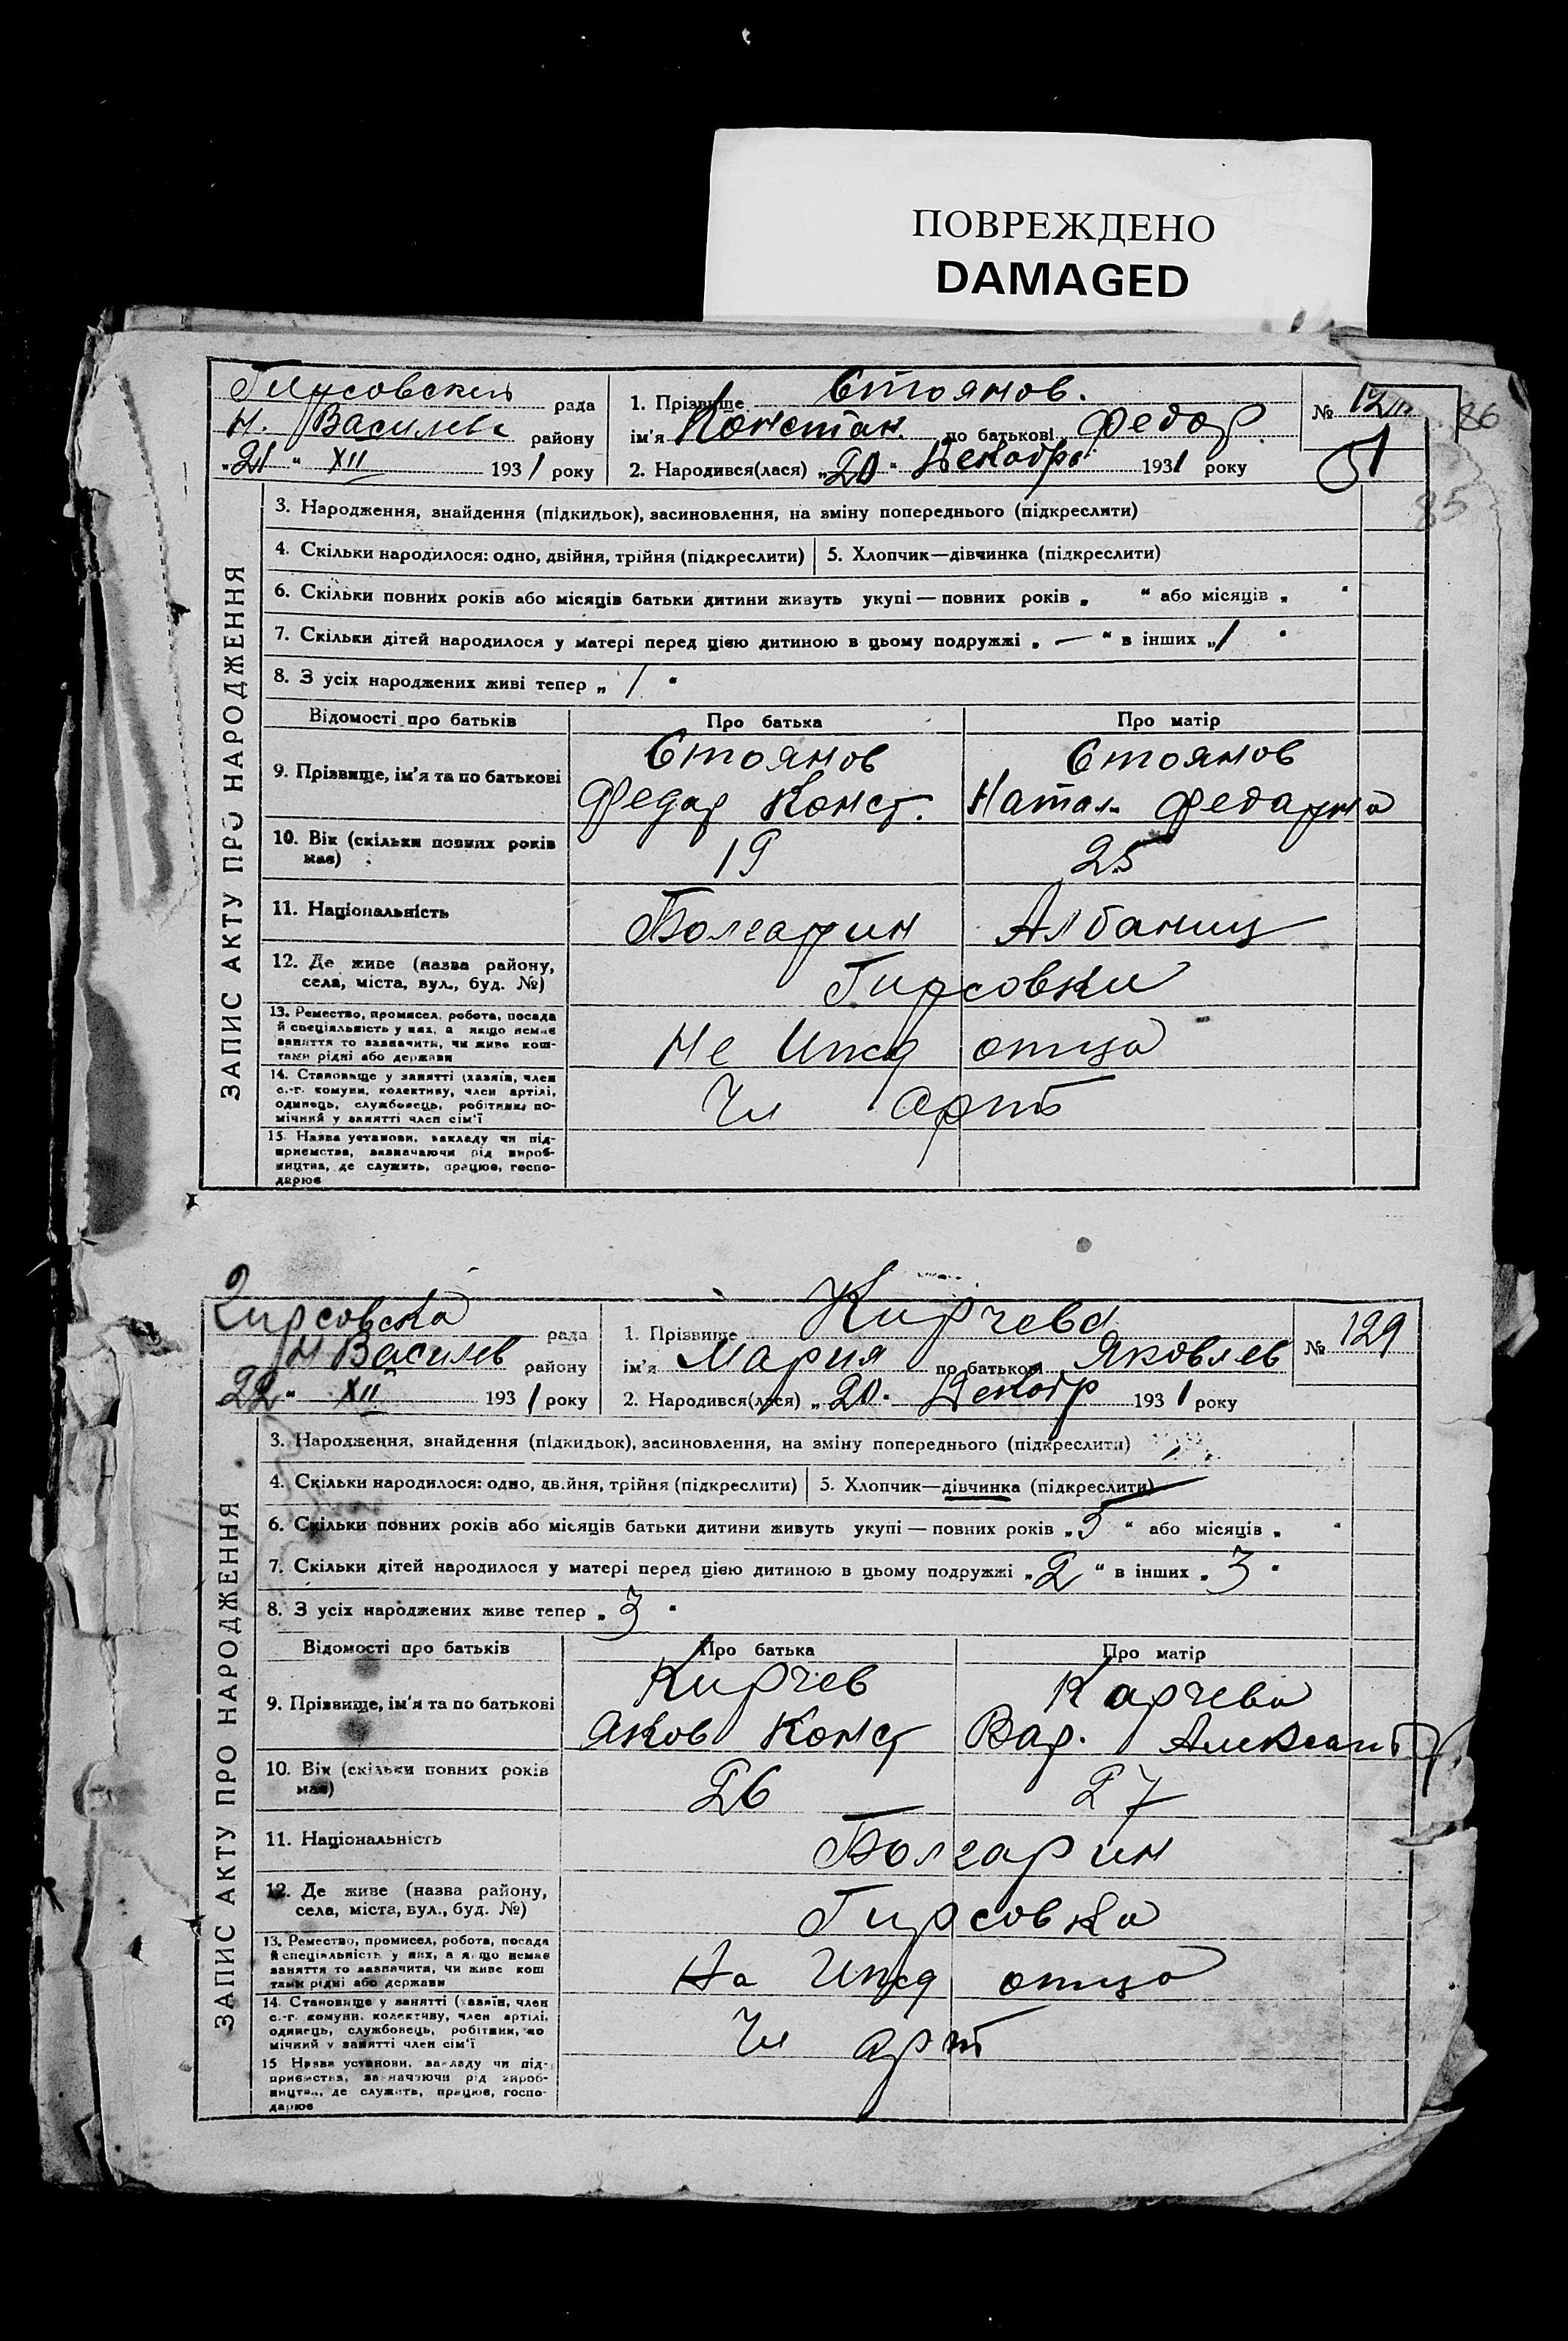 ПОВРЕЖДЕНО
DAMAGED
Гирсовский рада
Н. Василевс району
„21“ XII 1931 року
1. Прізвище Стоянов.
ім'я Констан. по батькові Федор.
2. Народився(лася) „20“ Декабрь 1931 року
№
86
51
85
ЗАПИС АКТУ ПРО НАРОДЖЕННЯ
3. Народження, знайдення (підкидьок), засиновлення, на зміну попереднього (підкреслити)
4. Скільки народилося: одно, двійня, трійня (підкреслити) 5. Хлопчик—дівчинка (підкреслити)
6. Скільки повних років або місяців батьки дитини живуть укупі — повних років „ “ або місяців „ “
7. Скільки дітей народилося у матері перед цією дитиною в цьому подружжі „ — “ в інших „1 “
8. З усіх народжених живі тепер „ 1 “
Відомості про батьків Про батька Про матір
9. Прізвище, ім'я та по батькові Стоянов Стоянов
Федор Конст. Натал. Федорна
10. Вік (скільки повних років має) 19 25
11. Національність Болгарин Албаниц
12. Де живе (назва району, села, міста, вул., буд. №) Гирсовки
13. Ремество, промисел, робота, посада
й спеціяльність у них, а якщо немає
заняття то зазначити, чи живе кош-
тами рідні або держави
Не Ижд отца
14. Становище у занятті (хазяїн, член
с.-г. комуни, колективу, член артілі,
одинець, службовець, робітник, по-
мічний у занятті член сім'ї
Чл арт
15. Назва установи, закладу чи під-
приємства, зазначаючи рід вироб-
ництва, де служить, працює, госпо-
дарює
Гирсовска рада
Н Василев району
22 “ XII 1931 року
1. Прізвище Кирчева
ім'я Мария по батькові Яковлев
2. Народився(лася) „20“ Декабр 1931 року
№ 129
ЗАПИС АКТУ ПРО НАРОДЖЕННЯ
3. Народження, знайдення (підкидьок), засиновлення, на зміну попереднього (підкреслити)
4. Скільки народилося: одно, двійня, трійня (підкреслити) 5. Хлопчик—дівчинка (підкреслити)
6. Скільки повних років або місяців батьки дитини живуть укупі — повних років „5 “ або місяців „ “
7. Скільки дітей народилося у матері перед цією дитиною в цьому подружжі „2 “ в інших „3 “
8. З усіх народжених живе тепер „ 3 “
Відомості про батьків Про батька Про матір
9. Прізвище, ім'я та по батькові Кирчев Карчева
Яков Конст Вар. Александр.
10. Вік (скільки повних років має) 26 27
11. Національність Болгарин
12. Де живе (назва району, села, міста, вул., буд. №) Гирсовка
13. Ремество, промисел, робота, посада
й спеціяльність у них, а якщо немає
заняття то зазначити, чи живе кош
тами рідні або держави
На Ижд отца
14. Становище у занятті (хазяїн, член
с.-г. комуни, колективу, член артілі,
одинець, службовець, робітник, по
мічний у занятті член сім'ї
Чл арт
15 Назва установи, закладу чи під-
приємства, зазначаючи рід вироб-
ництва, де служить, працює, госпо-
дарює